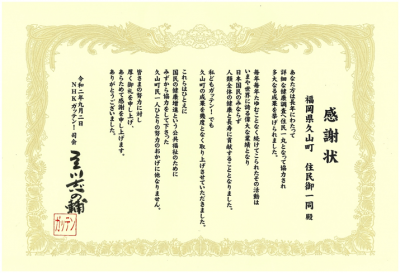 感謝状
福岡県久山町 住民御一同 殿
あなた方は長年にわたって
詳細な健康調査へ住民一丸となって協力され
多大なる成果を挙げられました。
毎年毎年たゆむことなく続けてこられたその活動は
いまや世界に誇る偉大な業績となり
日本国民のみならず
人類全体の健康と長寿に貢献することとなりました。
私どもガッテン!でも
久山町の成果を幾度となく取り上げさせていただきました。
これらはひとえに
国民の健康増進という公共福祉のために
みずから協力をして下さった
久山町民一人ひとりの努力のおかげに他なりません。
皆さまの努力に対し
厚く御礼を申し上げ、
あらためて感謝を申し上げます。
ありがとうございました。
令和二年九月二日
NHKガッテン! 司会
立川志の輔
ガッテン